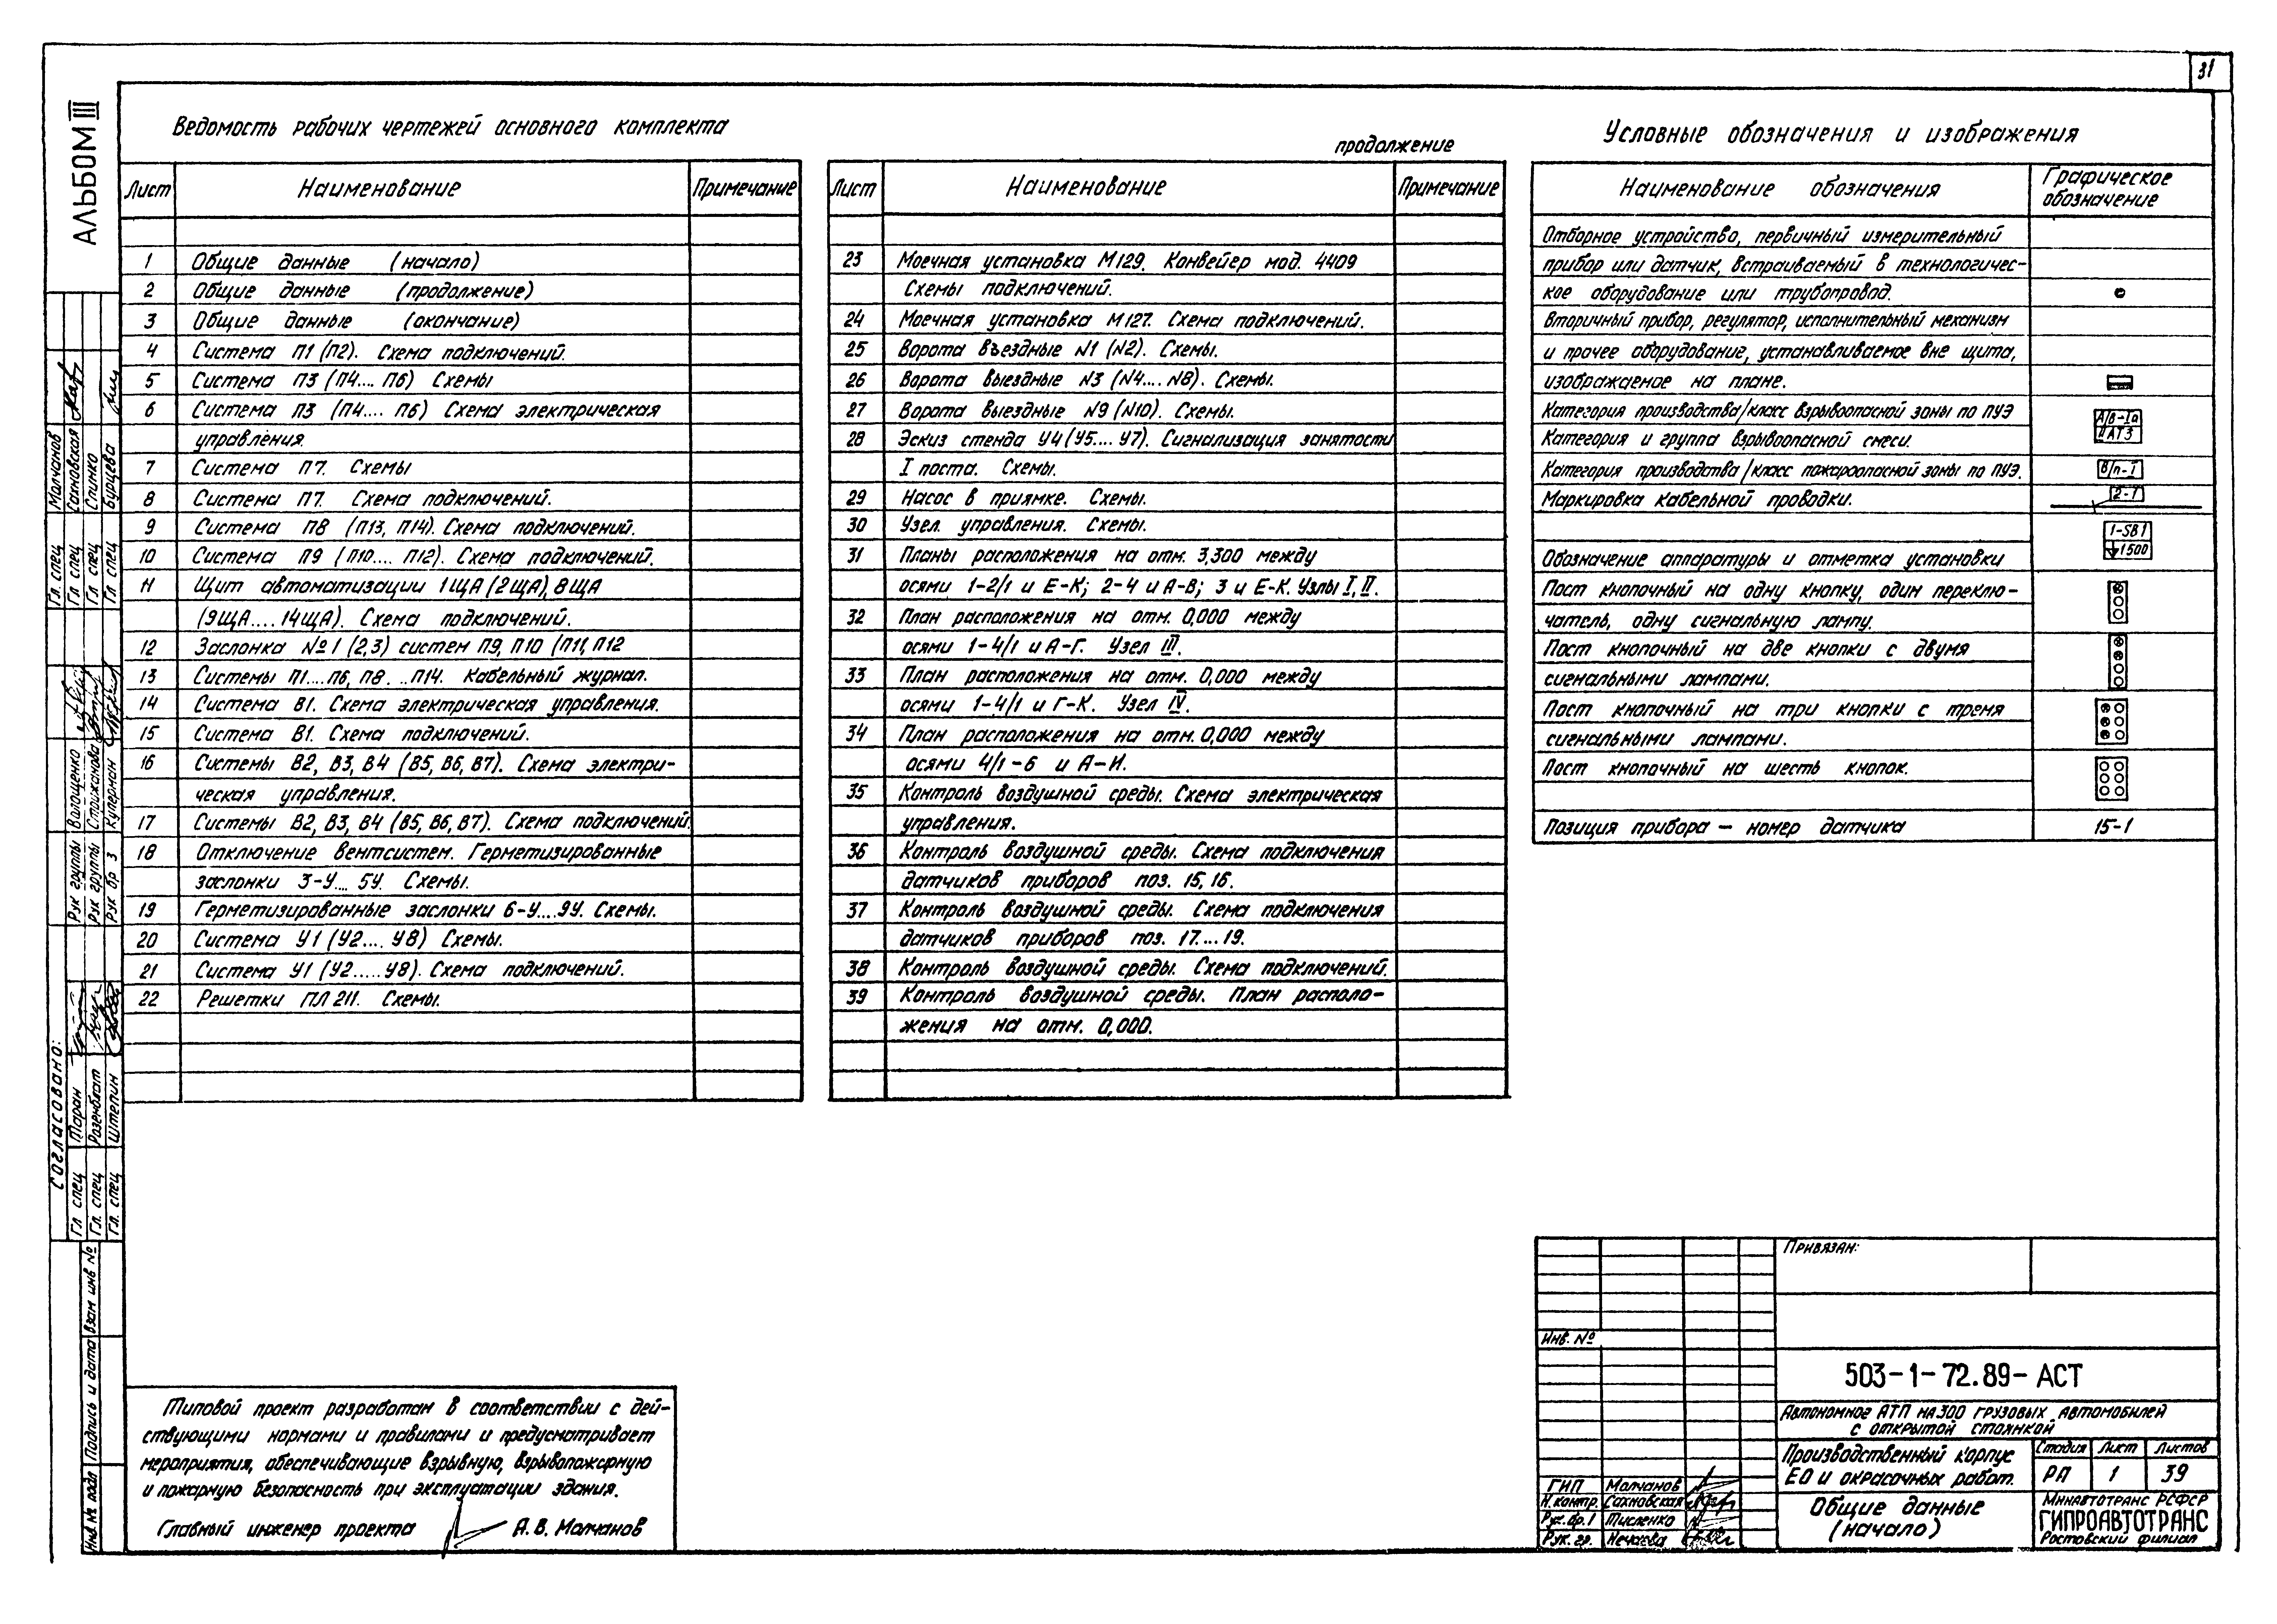 31
АЛЬБОМ III
Ведомость рабочих чертежей основного комплекта
Лист Наименование Примечание
1 Общие данные (начало)
2 Общие данные (продолжение)
3 Общие данные (окончание)
4 Система П1 (П2). Схема подключений.
5 Система П3 (П4.... П6) Схемы
6 Система П3 (П4.... П6) Схема электрическая
управления.
7 Система П7. Схемы
8 Система П7. Схема подключений.
9 Система П8 (П13, П14). Схема подключений.
10 Система П9 (П10.... П12). Схема подключений.
11 Щит автоматизации 1ЩА (2ЩА), 8ЩА
(9ЩА.... 14ЩА). Схема подключений.
12 Заслонка №1 (2,3) систем П9, П10 (П11, П12
13 Системы П1....П6, П8...П14. Кабельный журнал.
14 Система В1. Схема электрическая управления.
15 Система В1. Схема подключений.
16 Системы В2, В3, В4 (В5, В6, В7). Схема электри-
ческая управления.
17 Системы В2, В3, В4 (В5, В6, В7). Схема подключений.
18 Отключение вентсистем. Герметизированные
заслонки 3-У.... 5У. Схемы.
19 Герметизированные заслонки 6-У....9У. Схемы.
20 Система У1 (У2.... У8) Схемы.
21 Система У1 (У2..... У8). Схема подключений.
22 Решетки ПЛ 211. Схемы.
продолжение
Лист Наименование Примечание
23 Моечная установка М129. Конвейер мод. 4409
Схемы подключений.
24 Моечная установка М127. Схема подключений.
25 Ворота въездные N1 (N2). Схемы.
26 Ворота выездные N3 (N4.... N8). Схемы.
27 Ворота выездные N9 (N10). Схемы.
28 Эскиз стенда У4 (У5.... У7). Сигнализация занятости
I поста. Схемы.
29 Насос в приямке. Схемы.
30 Узел управления. Схемы.
31 Планы расположения на отм. 3,300 между
осями 1-2/1 и Е-К; 2-4 и А-В; 3 и Е-К. Узлы I, II.
32 План расположения на отм. 0,000 между
осями 1-4/1 и А-Г. Узел III.
33 План расположения на отм. 0,000 между
осями 1-4/1 и Г-К. Узел IV.
34 План расположения на отм. 0,000 между
осями 4/1-6 и А-И.
35 Контроль воздушной среды. Схема электрическая
управления.
36 Контроль воздушной среды. Схема подключения
датчиков приборов поз. 15, 16.
37 Контроль воздушной среды. Схема подключения
датчиков приборов поз. 17....19.
38 Контроль воздушной среды. Схема подключений.
39 Контроль воздушной среды. План располо-
жения на отм. 0,000.
Условные обозначения и изображения
Наименование обозначения Графическое
обозначение
Отборное устройство, первичный измерительный
прибор или датчик, встраиваемый в технологичес-
кое оборудование или трубопровод.
Вторичный прибор, регулятор, исполнительный механизм
и прочее оборудование, устанавливаемое вне щита,
изображаемое на плане.
Категория производства/класс взрывоопасной зоны по ПУЭ А/В-Iа
Категория и группа взрывоопасной смеси. IIАТ3
Категория производства/класс пожароопасной зоны по ПУЭ. В/п-I
Маркировка кабельной проводки. 2-1
1-SB1
Обозначение аппаратуры и отметка установки 1500
Пост кнопочный на одну кнопку, один переклю-
чатель, одну сигнальную лампу.
Пост кнопочный на две кнопки с двумя
сигнальными лампами.
Пост кнопочный на три кнопки с тремя
сигнальными лампами.
Пост кнопочный на шесть кнопок.
Позиция прибора - номер датчика 15-1
Гл. спец Молчанов
Гл спец Сахновская
Гл спец Слинко
Гл спец Бурцева
Рук группы Валющенко
Рук группы Стрижанова
Рук бр 3 Куперман
Согласовано:
Гл спец Топран
Гл. спец Розенблат
Гл. спец Штепин
Инв № подл Подпись и дата Взам инв №
Типовой проект разработан в соответствии с дей-
ствующими нормами и правилами и предусматривает
мероприятия, обеспечивающие взрывную, взрывопожарную
и пожарную безопасность при эксплуатации здания.
Главный инженер проекта А.В. Молчанов
Привязан:
Инв. №
503-1-72.89-АСТ
Автономное АТП на 300 грузовых автомобилей
с открытой стоянкой
Производственный корпус
ЕО и окрасочных работ.
Стадия Лист Листов
РП 1 39
ГИП Молчанов
Н. контр. Сахновская
Рук. бр. 1 Тисленко
Рук. гр. Нечаева
Общие данные
(начало)
Минавтотранс РСФСР
ГИПРОАВТОТРАНС
Ростовский филиал